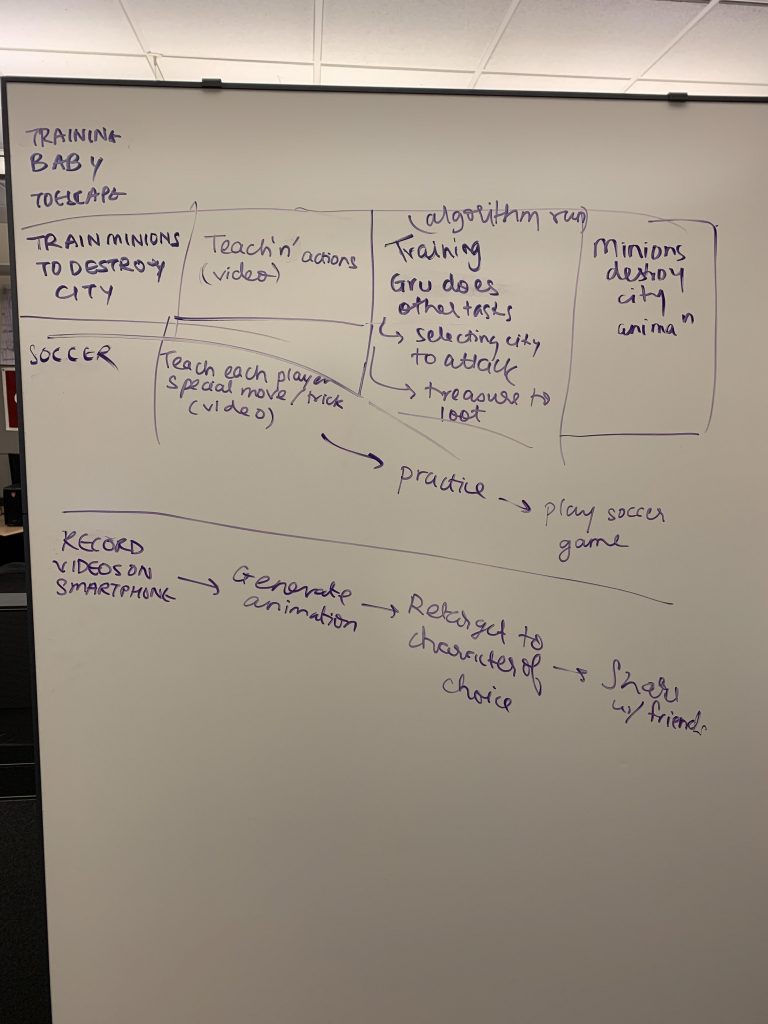 TRAINING
BABY
TO ESCAPE
TRAIN MINIONS
TO DESTROY
CITY
Teach 'n' actions
(video)
(algorithm run)
Training
Gru does
other tasks
↳ selecting city
to attack
→ treasure to
loot
Minions
destroy
city
animaⁿ
SOCCER
Teach each player
special move/trick
(video)
→ practice → play soccer
game
RECORD
VIDEOS ON
SMARTPHONE
→ Generate
animation
→ Retarget to
character of
choice
→ Share
w/ friends